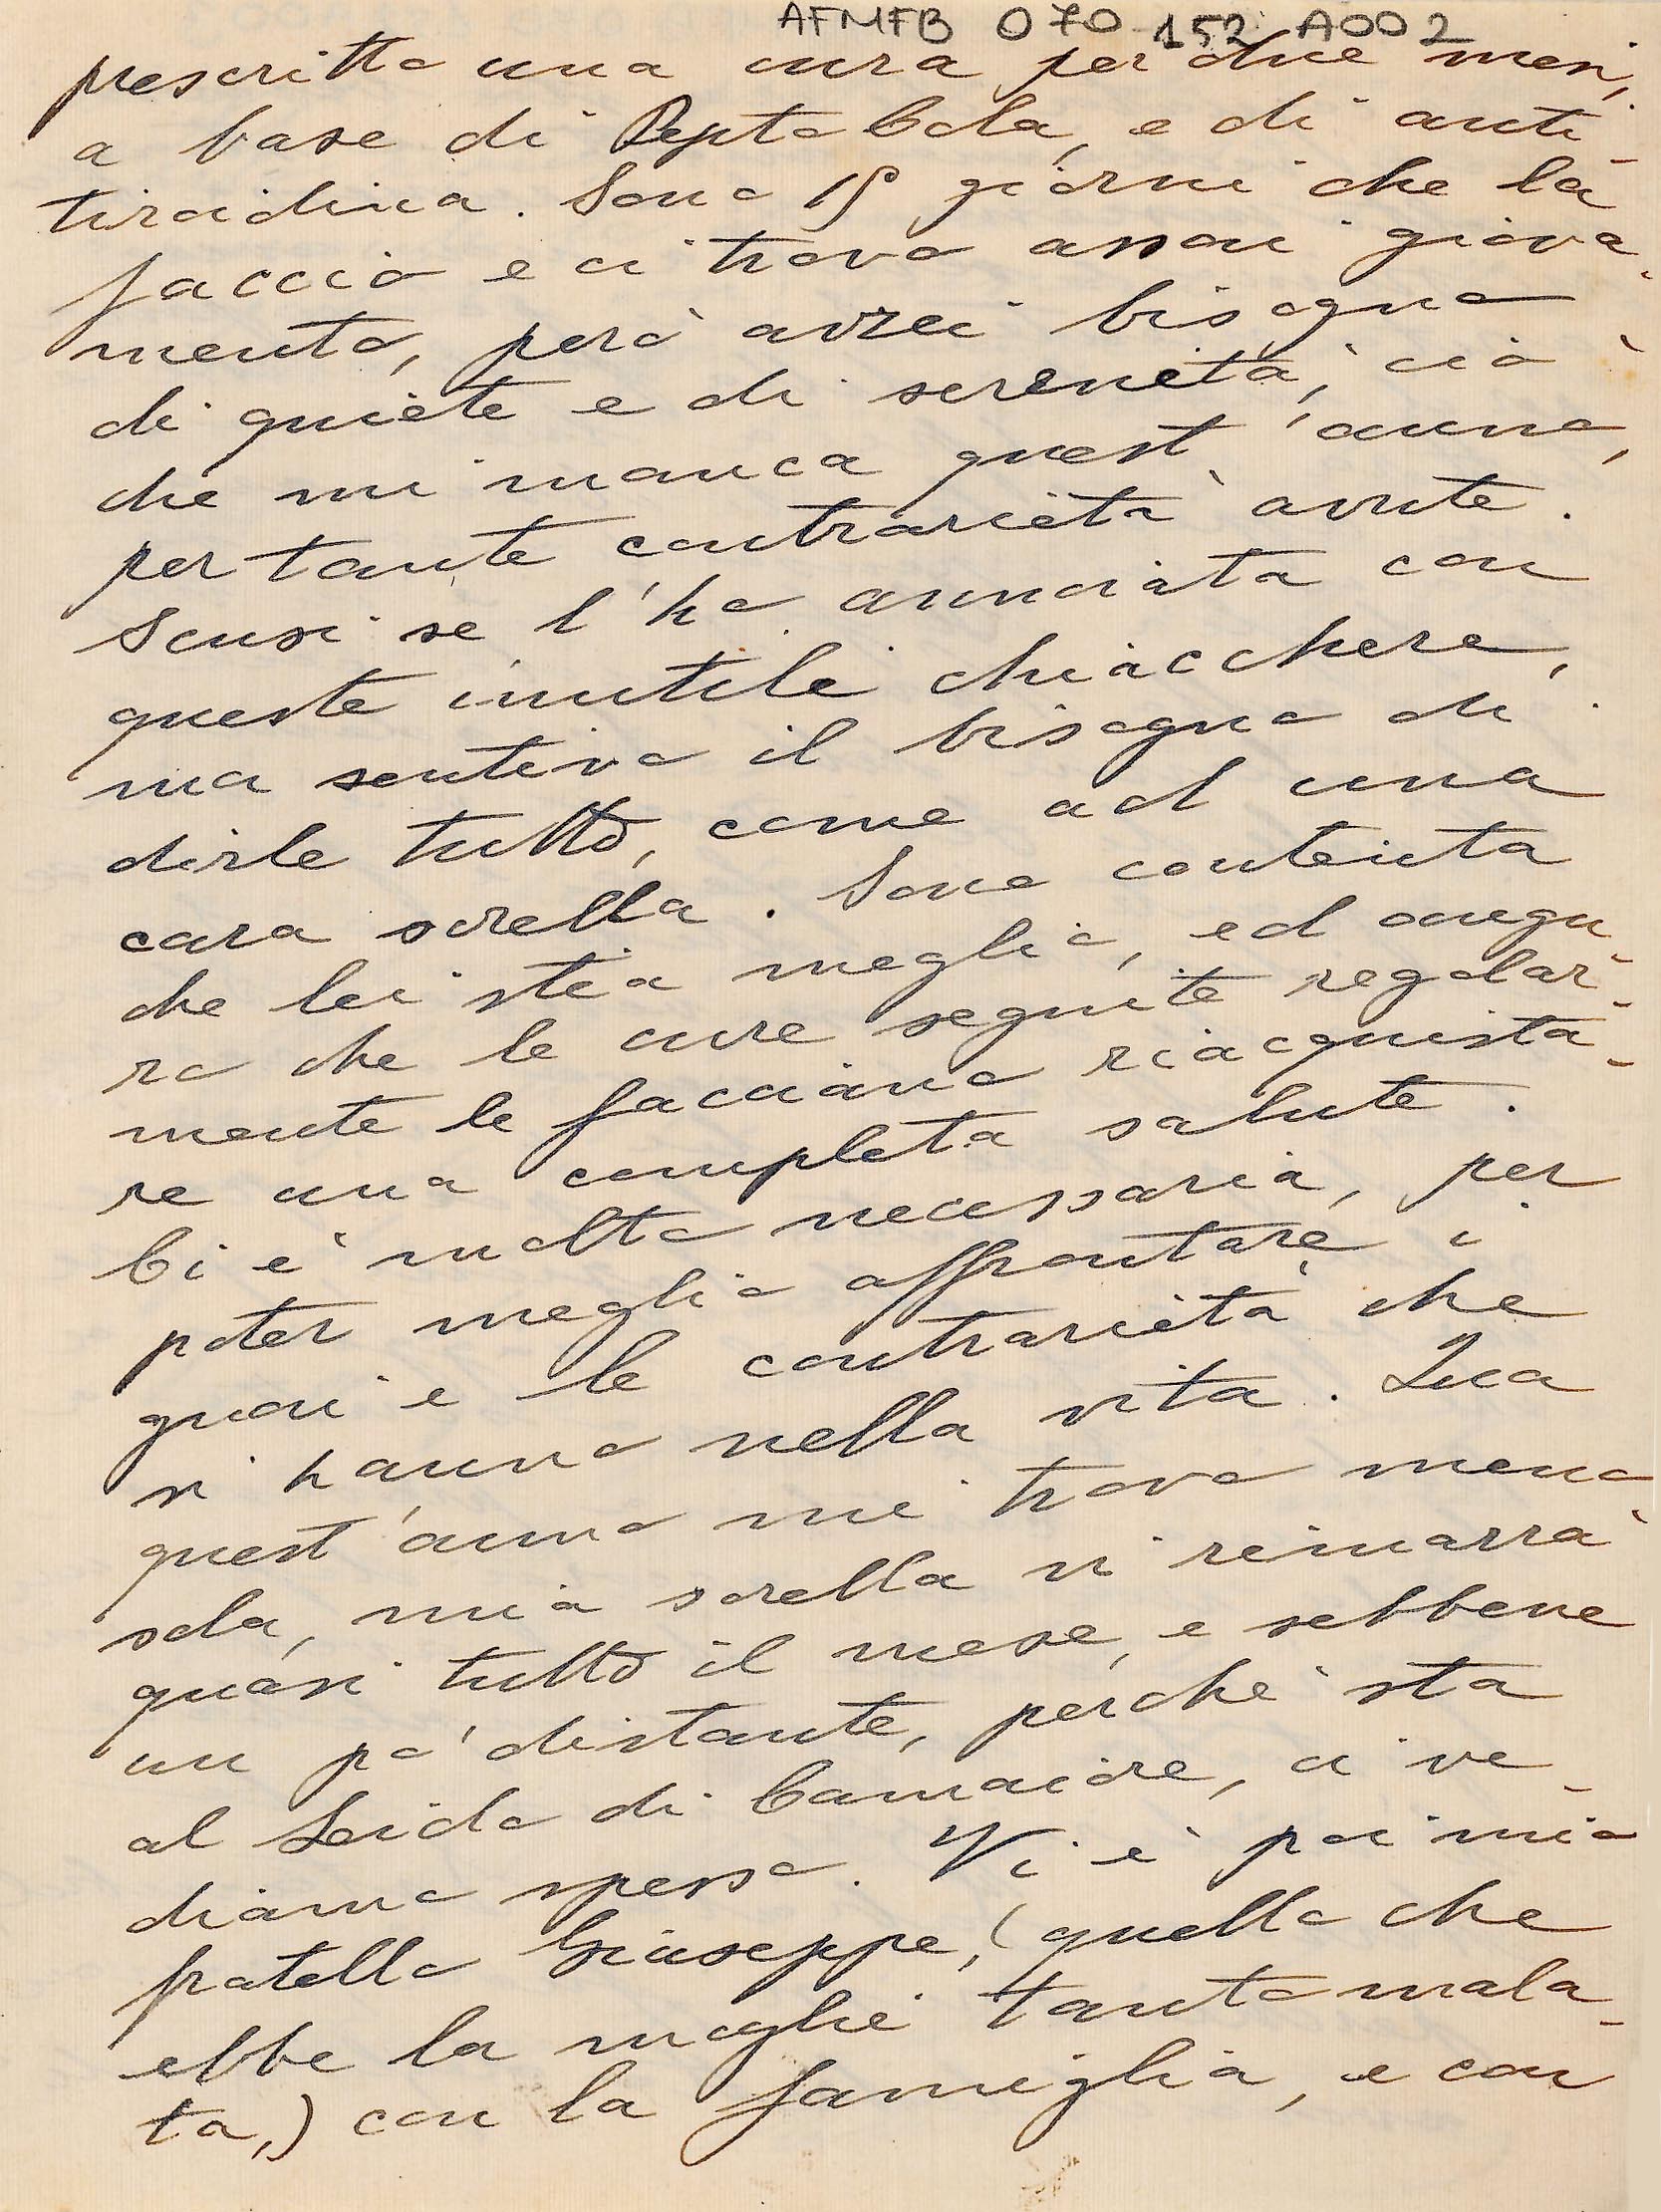 AFMFB 070 152 A002
prescritto una cura per due mesi,
a base di Pepto Cola, e di anti-
tiroidina. Sono 15 giorni che la
faccio e ci trovo assai giova-
mento, però avrei bisogno
di quiete e di serenità, ciò
che mi manca quest'anno,
per tante contrarietà avute.
Scusi se l'ho annoiata con
queste inutili chiacchere,
ma sentivo il bisogno di
dirle tutto, come ad una
cara sorella. Sono contenta
che lei stia meglio, ed augu-
ro che le cure seguite regolar-
mente le facciano riacquista-
re una completa salute.
Ci è molto necessaria, per
poter meglio affrontare i
guai e le contrarietà che
si hanno nella vita. Qua
quest'anno mi trovo meno
sola, mia sorella vi rimarrà
quasi tutto il mese, e sebbene
un pò distante, perchè sta
al Lido di Camaiore, ci ve-
diamo spesso. Vi è poi mio
fratello Giuseppe, (quello che
ebbe la moglie tanto mala-
ta,) con la famiglia, e con